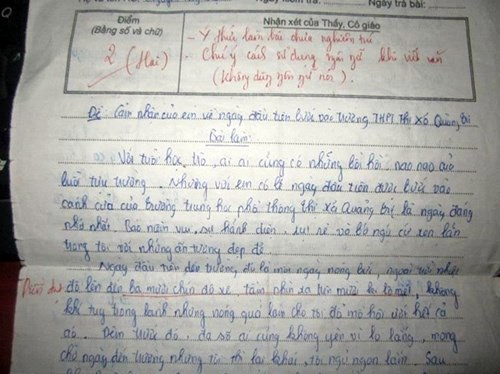 Ngày trả bài:
Điểm
(Bằng số và chữ)
Nhận xét của Thầy, Cô giáo
2 (Hai)
- Ý thức làm bài chưa nghiêm túc
- Chú ý cách sử dụng ngôn ngữ khi viết văn
(Không dùng ngôn ngữ nói).
Đề: Cảm nhận của em về ngày đầu tiên bước vào trường THPT Thị Xã Quảng Trị
Bài làm:
Với tuổi học trò, ai ai cũng có những bồi hồi, nao nao của
buổi tựu trường. Nhưng với em có lẽ ngày đầu tiên được bước vào
cánh cửa của trường trung học phổ thông thị xã Quảng Trị là ngày đáng
nhớ nhất. Bao niềm vui, sự hãnh diện, rụt rè và bỡ ngỡ cứ xen lẫn
trong tôi với những ấn tượng đẹp đẽ.
Ngày đầu tiên đến trường, đó là một ngày nóng bức, ngoài trời nhiệt
độ lên đến ba mươi chín độ xê, tầm nhìn xa trên mười ki lô mét, không
khí tuy trong lành nhưng nóng quá làm cho tôi đổ mồ hôi ướt hết cả
áo. Đêm trước đó, đa số ai cũng không yên vì lo lắng, mong
chờ ngày đến trường nhưng tôi thì lại khác, tôi ngủ ngon lắm. Sau